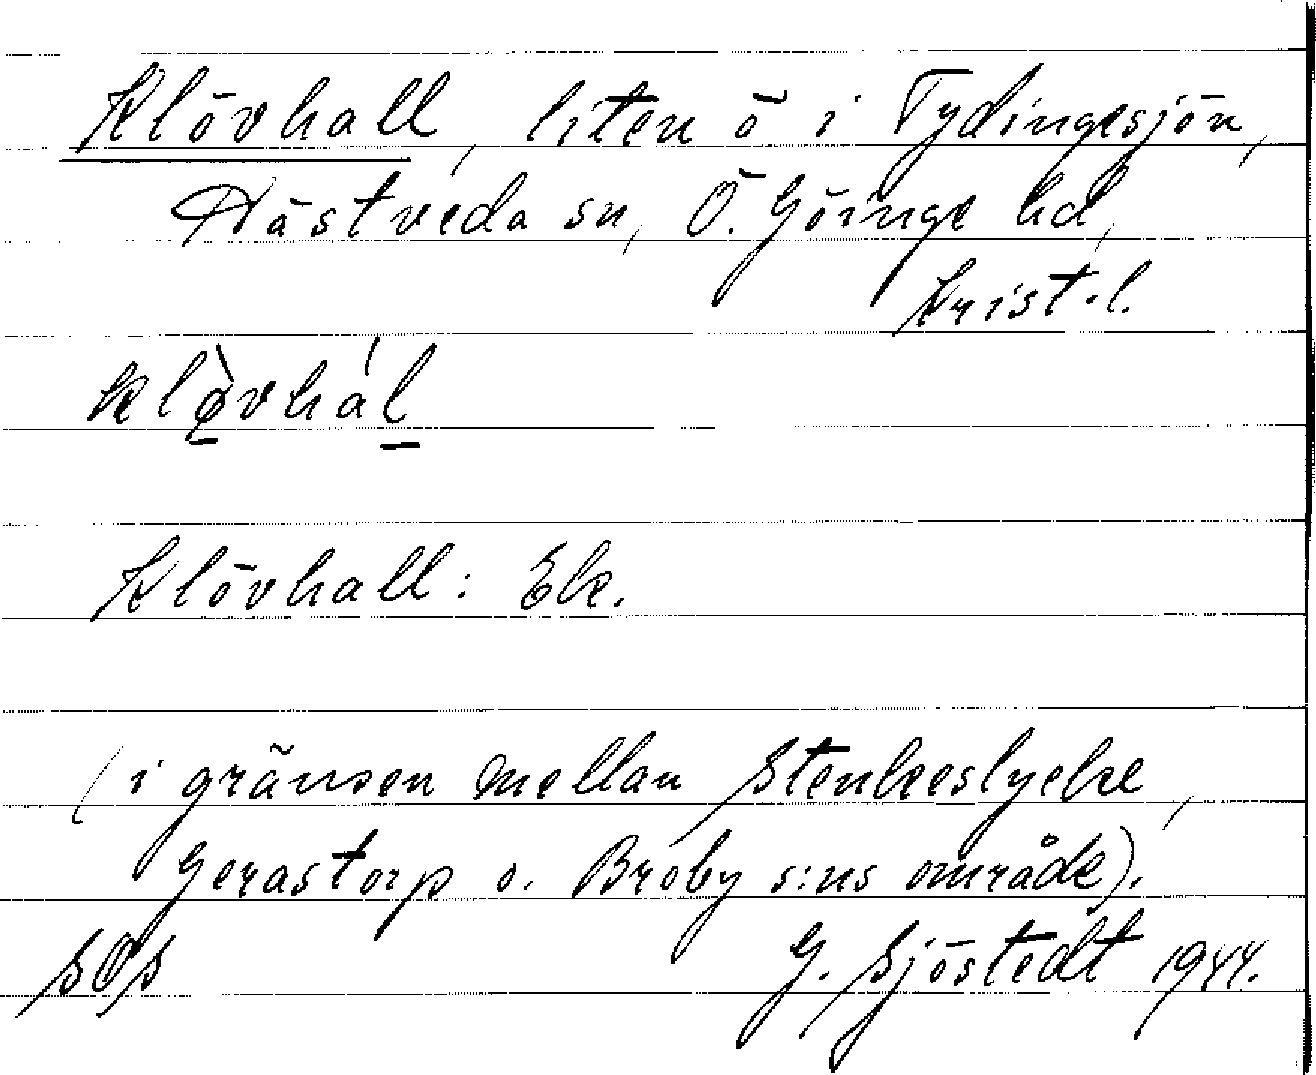 Klövhall, liten ö i Tydingesjön,
Hästveda sn, Ö. Göinge hd,
Krist.l.
klø̀vhál
Klövhall: Ek.
(i gränsen mellan Stenkeslycke,
Gerastorp o. Broby s:ns område).
SOS G. Sjöstedt 1944.